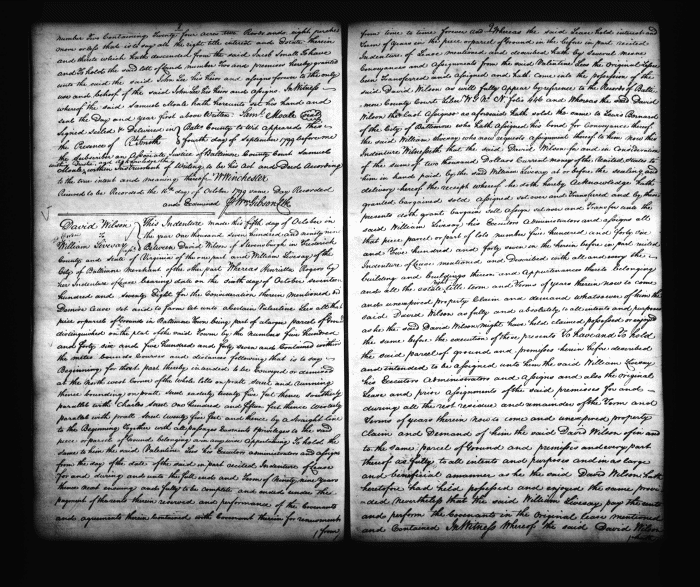 number Two Containing Twenty four acres two Roods and eight perches
more or less that is to say all the right title interest and Estate therein
and thereto which hath descended from the said Jacob Small To have
and To hold the said lots of Ground number Two and premises hereby granted
unto the said the said John Lee his heirs and assigns forever to the only
use and behoof of the said John Lee his heirs and assigns In Witness
whereof the said Samuel Moale hath hereunto set his hand and
seal the Day and year first above Written Saml. Moale
Signed Sealed & Delivered in Balto County to Wit appeared this
the Presence of fourth day of September 1799 before me
the subscriber an Associate Justice of Baltimore County Court Samuel
Moale within Instrument of Writing to be his Act and Deed According
to the true intent and meaning thereof W Winchester
Received to be Recorded the 16th day of October 1799 same Day Recorded
and Examined Wm Gibson Clk
David Wilson This Indenture made this fifth day of October in
to the year One thousand seven hundred and ninety nine
William Livesay Between David Wilson of in Frederick
County and state of Virginia of the one part and William Livesay of the
City of Baltimore Merchant of the other part Whereas Rogers by
her Indenture of Lease bearing date on the sixth day of October seventeen
hundred and seventy Eight for the Consideration therein Mentioned did
Demise Lease set and to farm let unto a certain Valentine all that
piece or parcel of Ground in Baltimore Town being part of a larger parcel of Ground
distinguished on the plat of the said Town by the numbers five hundred
and forty six and five hundred and forty seven and Contained within
the metes bounds Courses and distances following that is to say
Beginning for that part thereby intended to be Conveyed or demised
at the North west Corner of the whole lotts on pratt street and running
thence bounding on pratt street easterly twenty five feet thence southerly
parallel with Charles street One hundred and fifteen feet thence westerly
parallel with pratt street twenty five feet and thence by a straight line
to the Beginning together with all passages Easments & privileges to the said
piece or parcel of Ground belonging or in anywise Appertaining To hold the
same to him the said Valentine his Executors administrators and assigns
from the day of the date of the said in part recited Indenture of Lease
for and during and unto the full end and Term of Ninety nine years
thence next ensuing and fully to be complete and ended under the
payment of the rents therein reserved and performance of the Covenants
and agreements therein contained with Covenant therein for renewment
from
from time to time forever And Whereas the said Lease hold interest and
Term of years in the piece or parcel of Ground in the before in part recited
Indenture of Lease mentioned and described hath by several mesne
Conveyances and Assignments from the said Valentine the Original Lessee
been Transferred and assigned and hath come into the possession of the
said David Wilson as will fully appear by reference to the Records of Balti
more County Court Liber W G No N folio 446 and Whereas the said David
Wilson the last Assignee as aforesaid hath sold the same to Lewis Barnard
of the City of Baltimore who hath assigned the bond for Conveyance thereof to
the said William Livesay who now requests Assignment thereof to him Now this
Indenture Witnesseth that the said David Wilson for and in Consideration
of the sum of two thousand Dollars Current money of the United States to
him in hand paid by the said William Livesay at or before the sealing and
delivery hereof the receipt whereof he doth hereby Acknowledge hath
granted bargained sold Assigned set over and Transferred and by these
presents doth grant bargain sell Assign set over and Transfer unto the
said William Livesay his Executors Administrators and Assigns all
that piece parcel or part of lots number five hundred and forty six
and five hundred and forty seven in the herein before in part recited
Indenture of Lease mentioned and Described with all and every the
building and buildings thereon and Appertenances thereto belonging
and all the estate right title term and Terms of years therein now to come
and unexpired property Claim and demand whatsoever of him the
said David Wilson as fully and absolutely to all intents and purposes
as he the said David Wilson might have held claimed possessed or enjoyed
the same before the execution of these presents To have and To hold
the said parcel of ground and premises herein before described
and intended to be assigned unto him the said William Livesay
his Executors Administrators and Assigns and also the original
Lease and prior Assignments of the said premises for and
during all the rest residue and remainder of the Term and
Terms of years therein now to come and unexpired property
Claim and Demand of him the said David Wilson of in and
to the same parcel of Ground and premises and every part
thereof as fully to all intent and purpose and in as large
and beneficial a manner as the said David Wilson hath
heretofore held possessed and enjoyed the same Provi
ded Nevertheless that the said William Livesay pay the rents
and perform the Covenants in the Original lease mentioned
and contained In Witness Whereof the said David Wilson